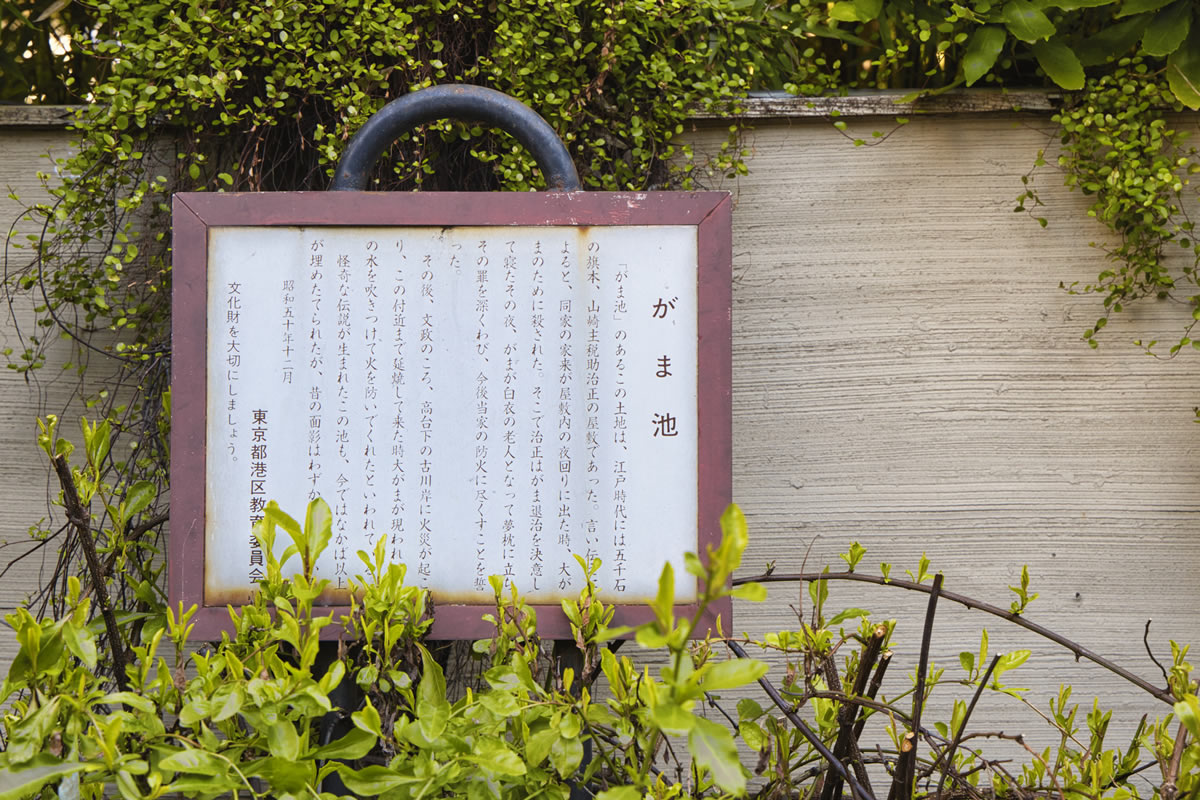 がま池
「がま池」のあるこの土地は、江戸時代には五千石
の旗本、山崎主税助治正の屋敷であった。言い伝
よると、同家の家来が屋敷内の夜回りに出た時、大が
まのために殺された。そこで治正はがま退治を決意し
て寝たその夜、がまが白衣の老人となって夢枕に立ち
その罪を深くわび、今後当家の防火に尽くすことを誓
った。
その後、文政のころ、高台下の古川岸に火災が起こ
り、この付近まで延焼して来た時大がまが現われ
の水を吹きつけて火を防いでくれたといわれて
怪奇な伝説が生まれたこの池も、今ではなかば以上
が埋めたてられたが、昔の面影はわずか
昭和五十年十二月
東京都港区教育委員会
文化財を大切にしましょう。